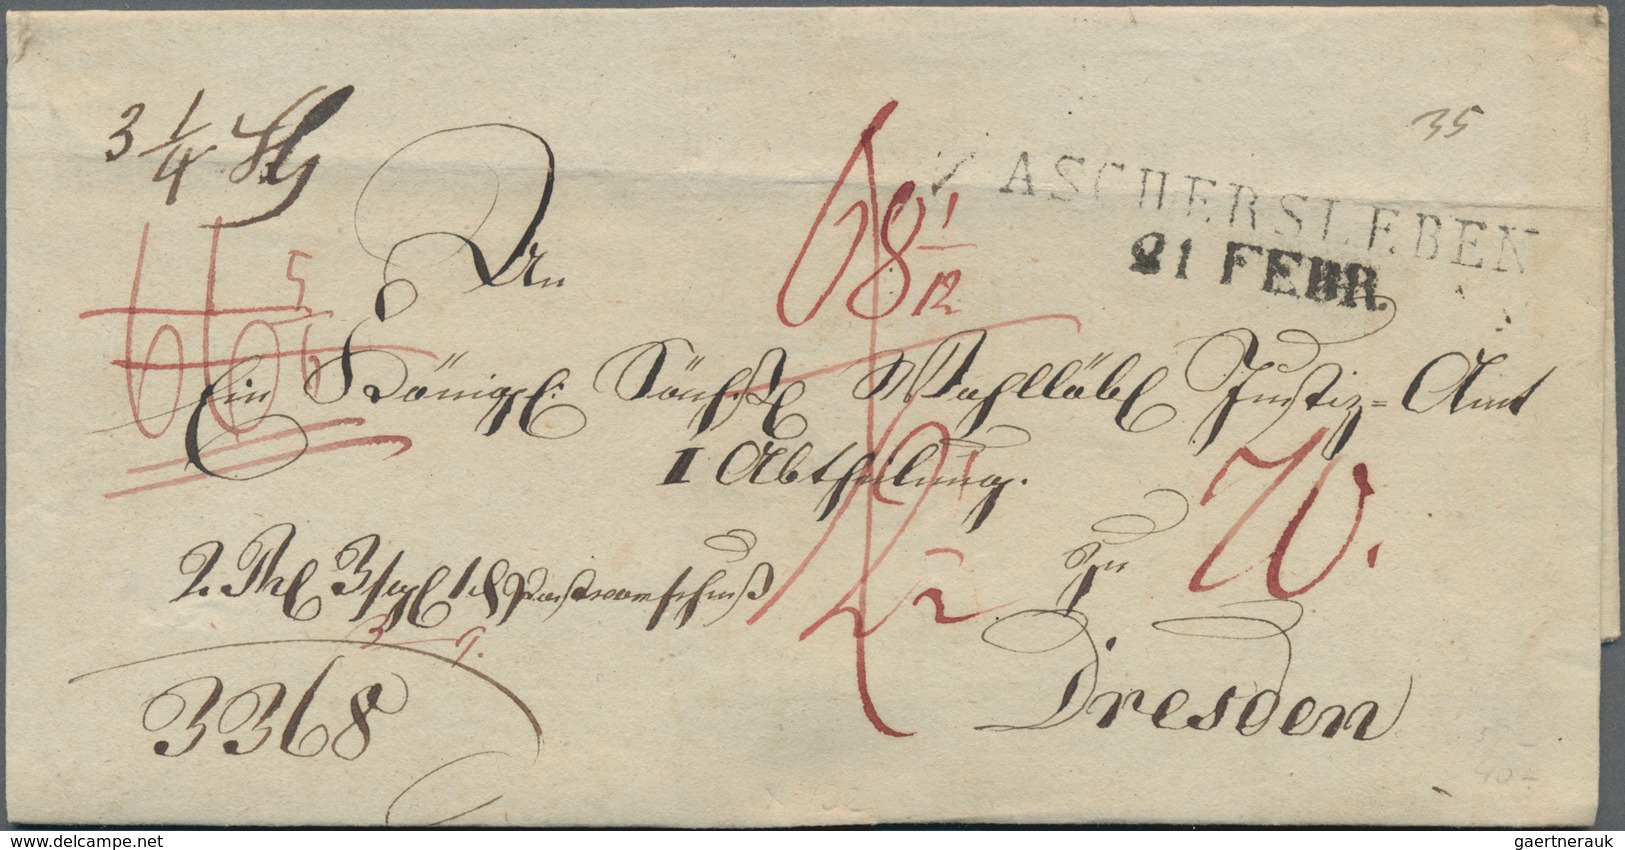 35
3 1/4
ASCHERSLEBEN
21 FEBR.
An
68 1/12
Ein Königl: Sächß. Wohllöbl Justiz=Amt
I Abtheilung.
70.
zu
2. Thl 3 sgl 1 d Postvorschuß
Dresden
3368
delcampe.net
gaertnerauk